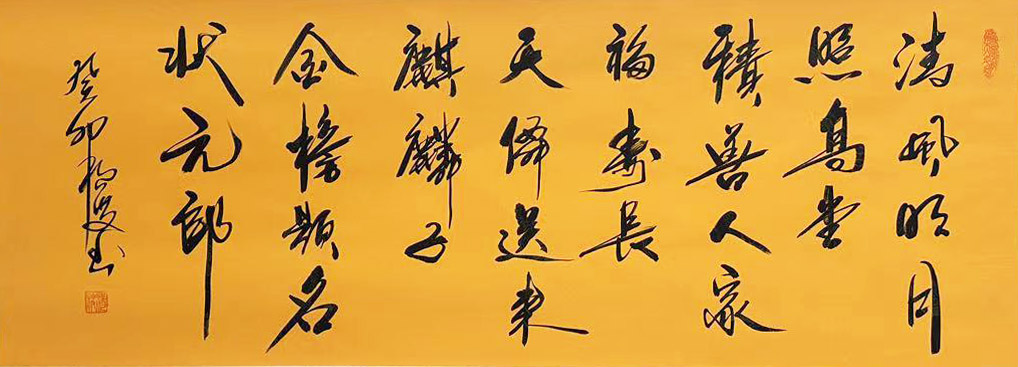 清風明月
照高堂
積善人家
福壽長
天僊送来
麒麟子
金榜題名
状元郎
癸卯书